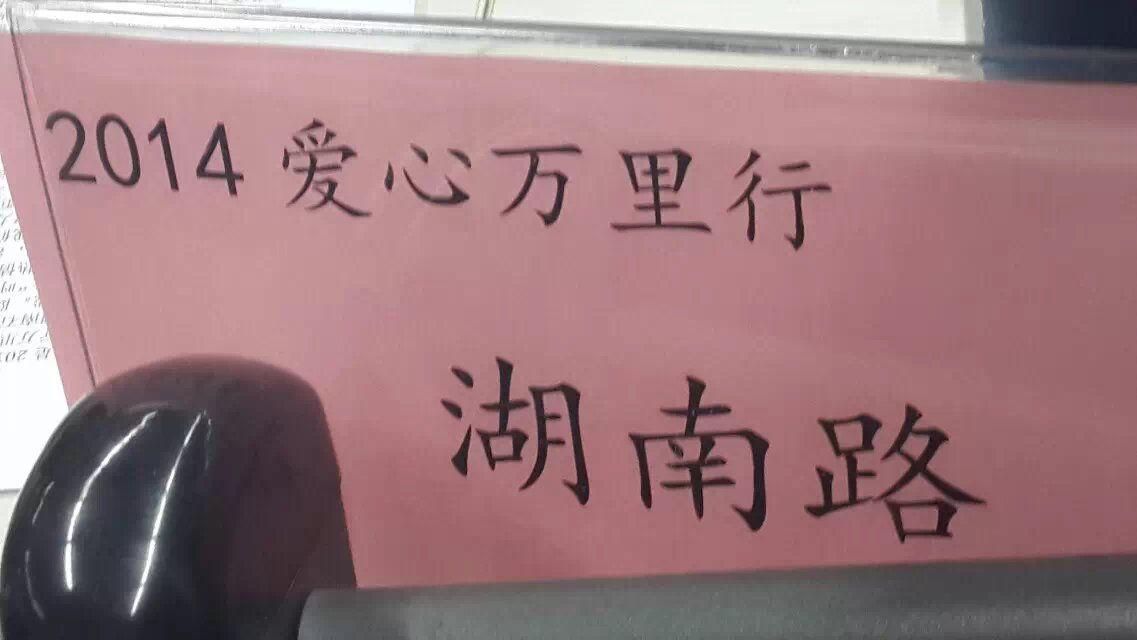 2014 爱心万里行
湖南路